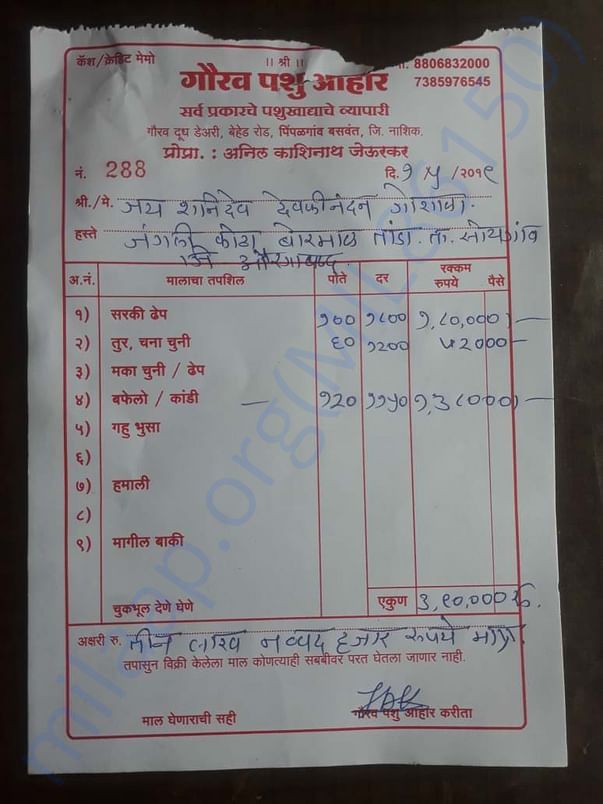 कॅश/क्रेडिट मेमो ॥ श्री ॥ 8806832000
7385976545
गौरव पशु आहार
सर्व प्रकारचे पशुखाद्याचे व्यापारी
गौरव दूध डेअरी, बेहेड रोड, पिंपळगांव बसवंत, जि. नाशिक.
प्रोप्रा. : अनिल काशिनाथ जेऊरकर
नं. 288 दि. /२०१९
श्री./मे. जय शनिदेव देवकीनंदन गोशाळा.
हस्ते जंगली कोठा, बोरमाळ तांडा. ता. सोयगांव
जि औरंगाबाद
अ.नं. मालाचा तपशिल पोते दर रक्कम रुपये पैसे
१) सरकी ढेप १०० १८०० १,८०,०००)—
२) तुर, चना चुनी ६० १२०० ७२०००—
३) मका चुनी / ढेप
४) बफेलो / कांडी — १२० ११५० १,३८०००)—
५) गहु भुसा
६)
७) हमाली
८)
९) मागील बाकी
चुकभूल देणे घेणे एकुण ३,९०,०००रु.
अक्षरी रु. तीन लाख नव्वद हजार रुपये मात्र.
तपासुन विक्री केलेला माल कोणत्याही सबबीवर परत घेतला जाणार नाही.
माल घेणाराची सही गौरव पशु आहार करीता
milaap.org(MILa6150)